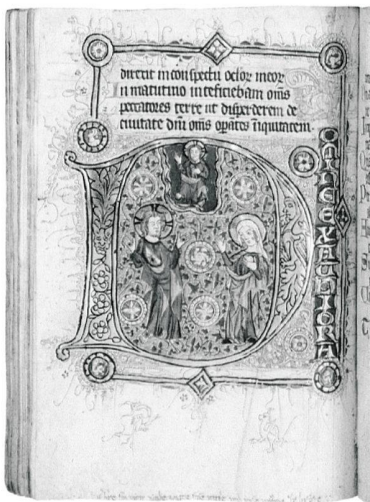 direxit in conspectu oclor meor
n matutino interficiebam oms
peccatores terre ut disperderem de
ciuitate dni oms opates iniquitatem.
D
OMINE EXAUDI ORA